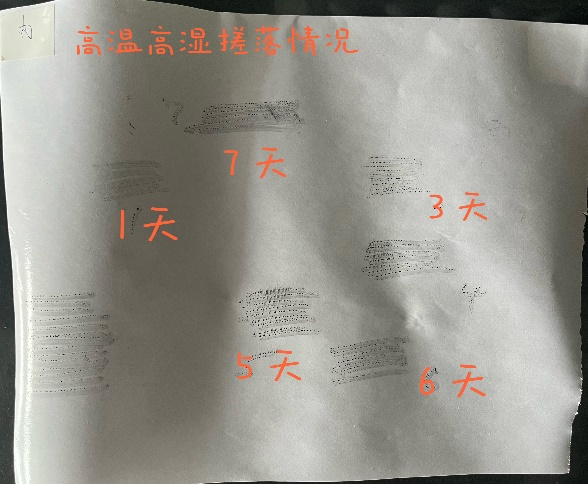 内
高温高湿搓落情况
7天
3天
1天
5天
6天